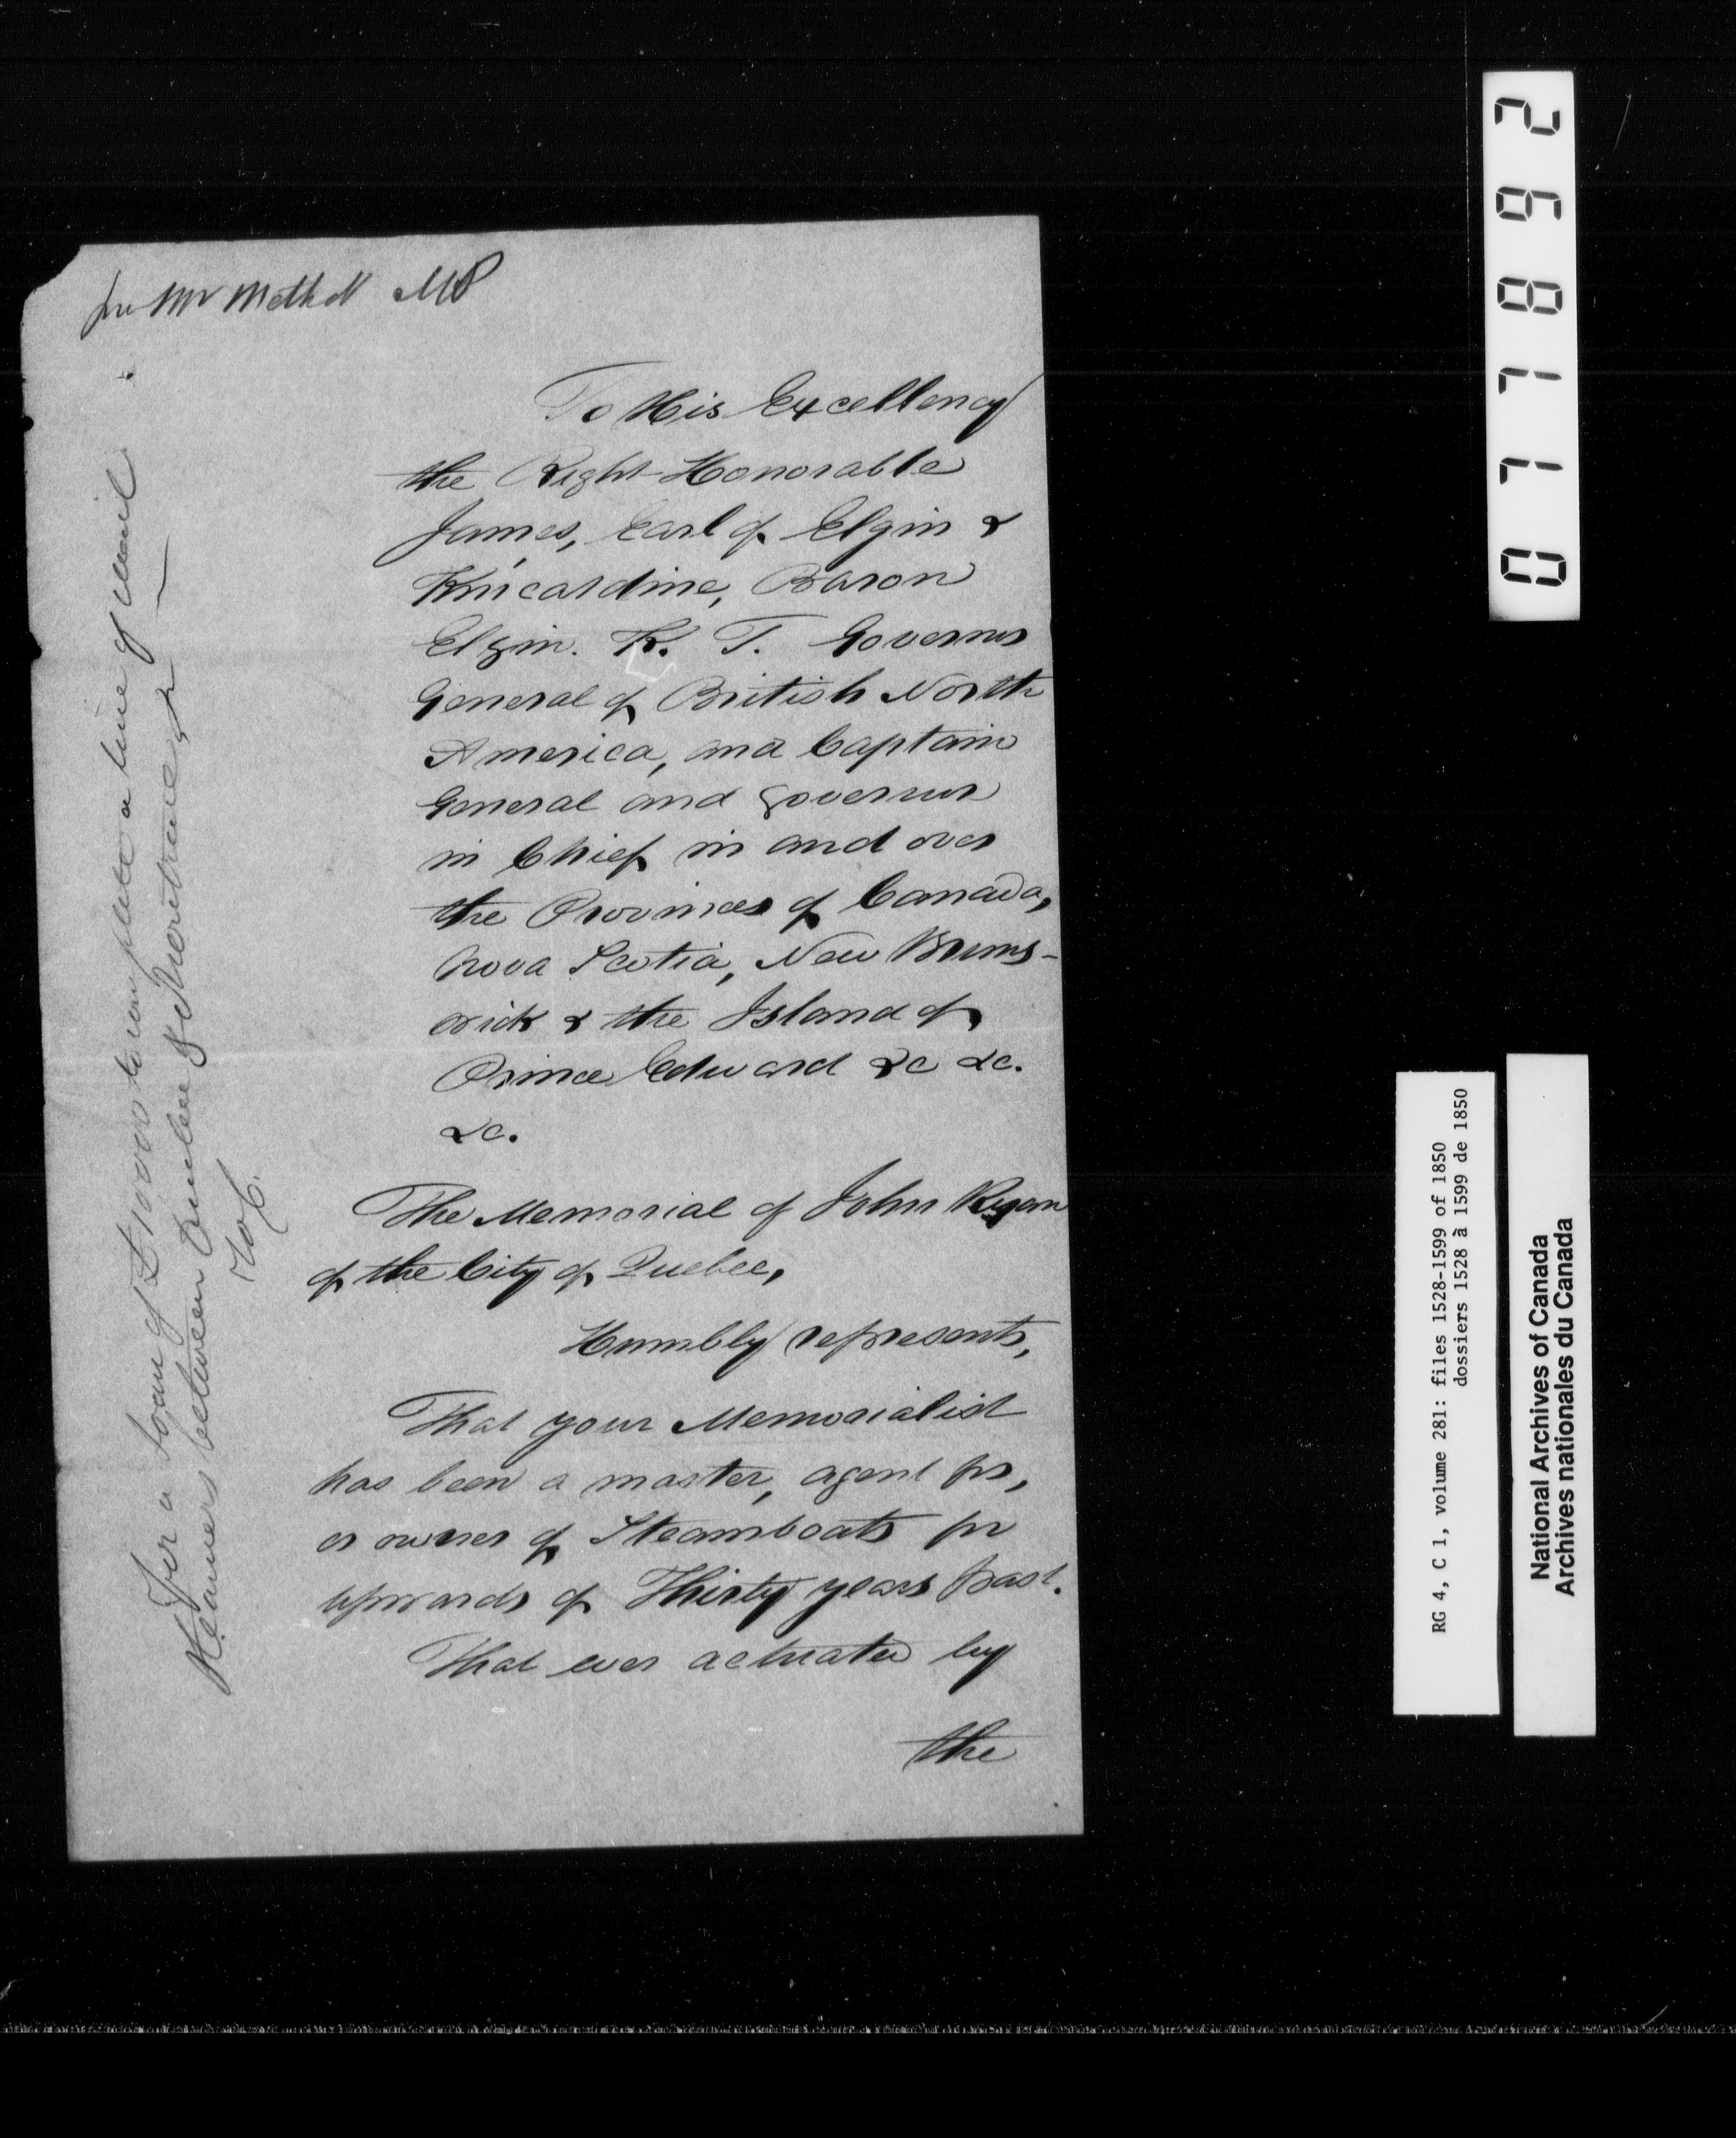 per Mr Methot MP
To His Excellency
the Right Honorable
James, Earl of Elgin &
Kincardine, Baron
Elgin. K. T. Governor
General of British North
America, and Captain
General and Governor
in Chief in and over
the Provinces of Canada,
Nova Scotia, New Bruns-
wick & the Island of
Prince Edward &c &c.
&c.
The Memorial of John Ryan
of the City of Quebec,
Humbly represents,
That your Memorialist
has been a master, agent for,
or owner of Steamboats for
upwards of Thirty years past.
That ever actuated by
the
For a loan of £10000 to complete a line of
Steamers between Quebec & Montreal &
077892
RG 4, C 1, volume 281: files 1528-1599 of 1850
dossiers 1528 à 1599 de 1850
National Archives of Canada
Archives nationales du Canada